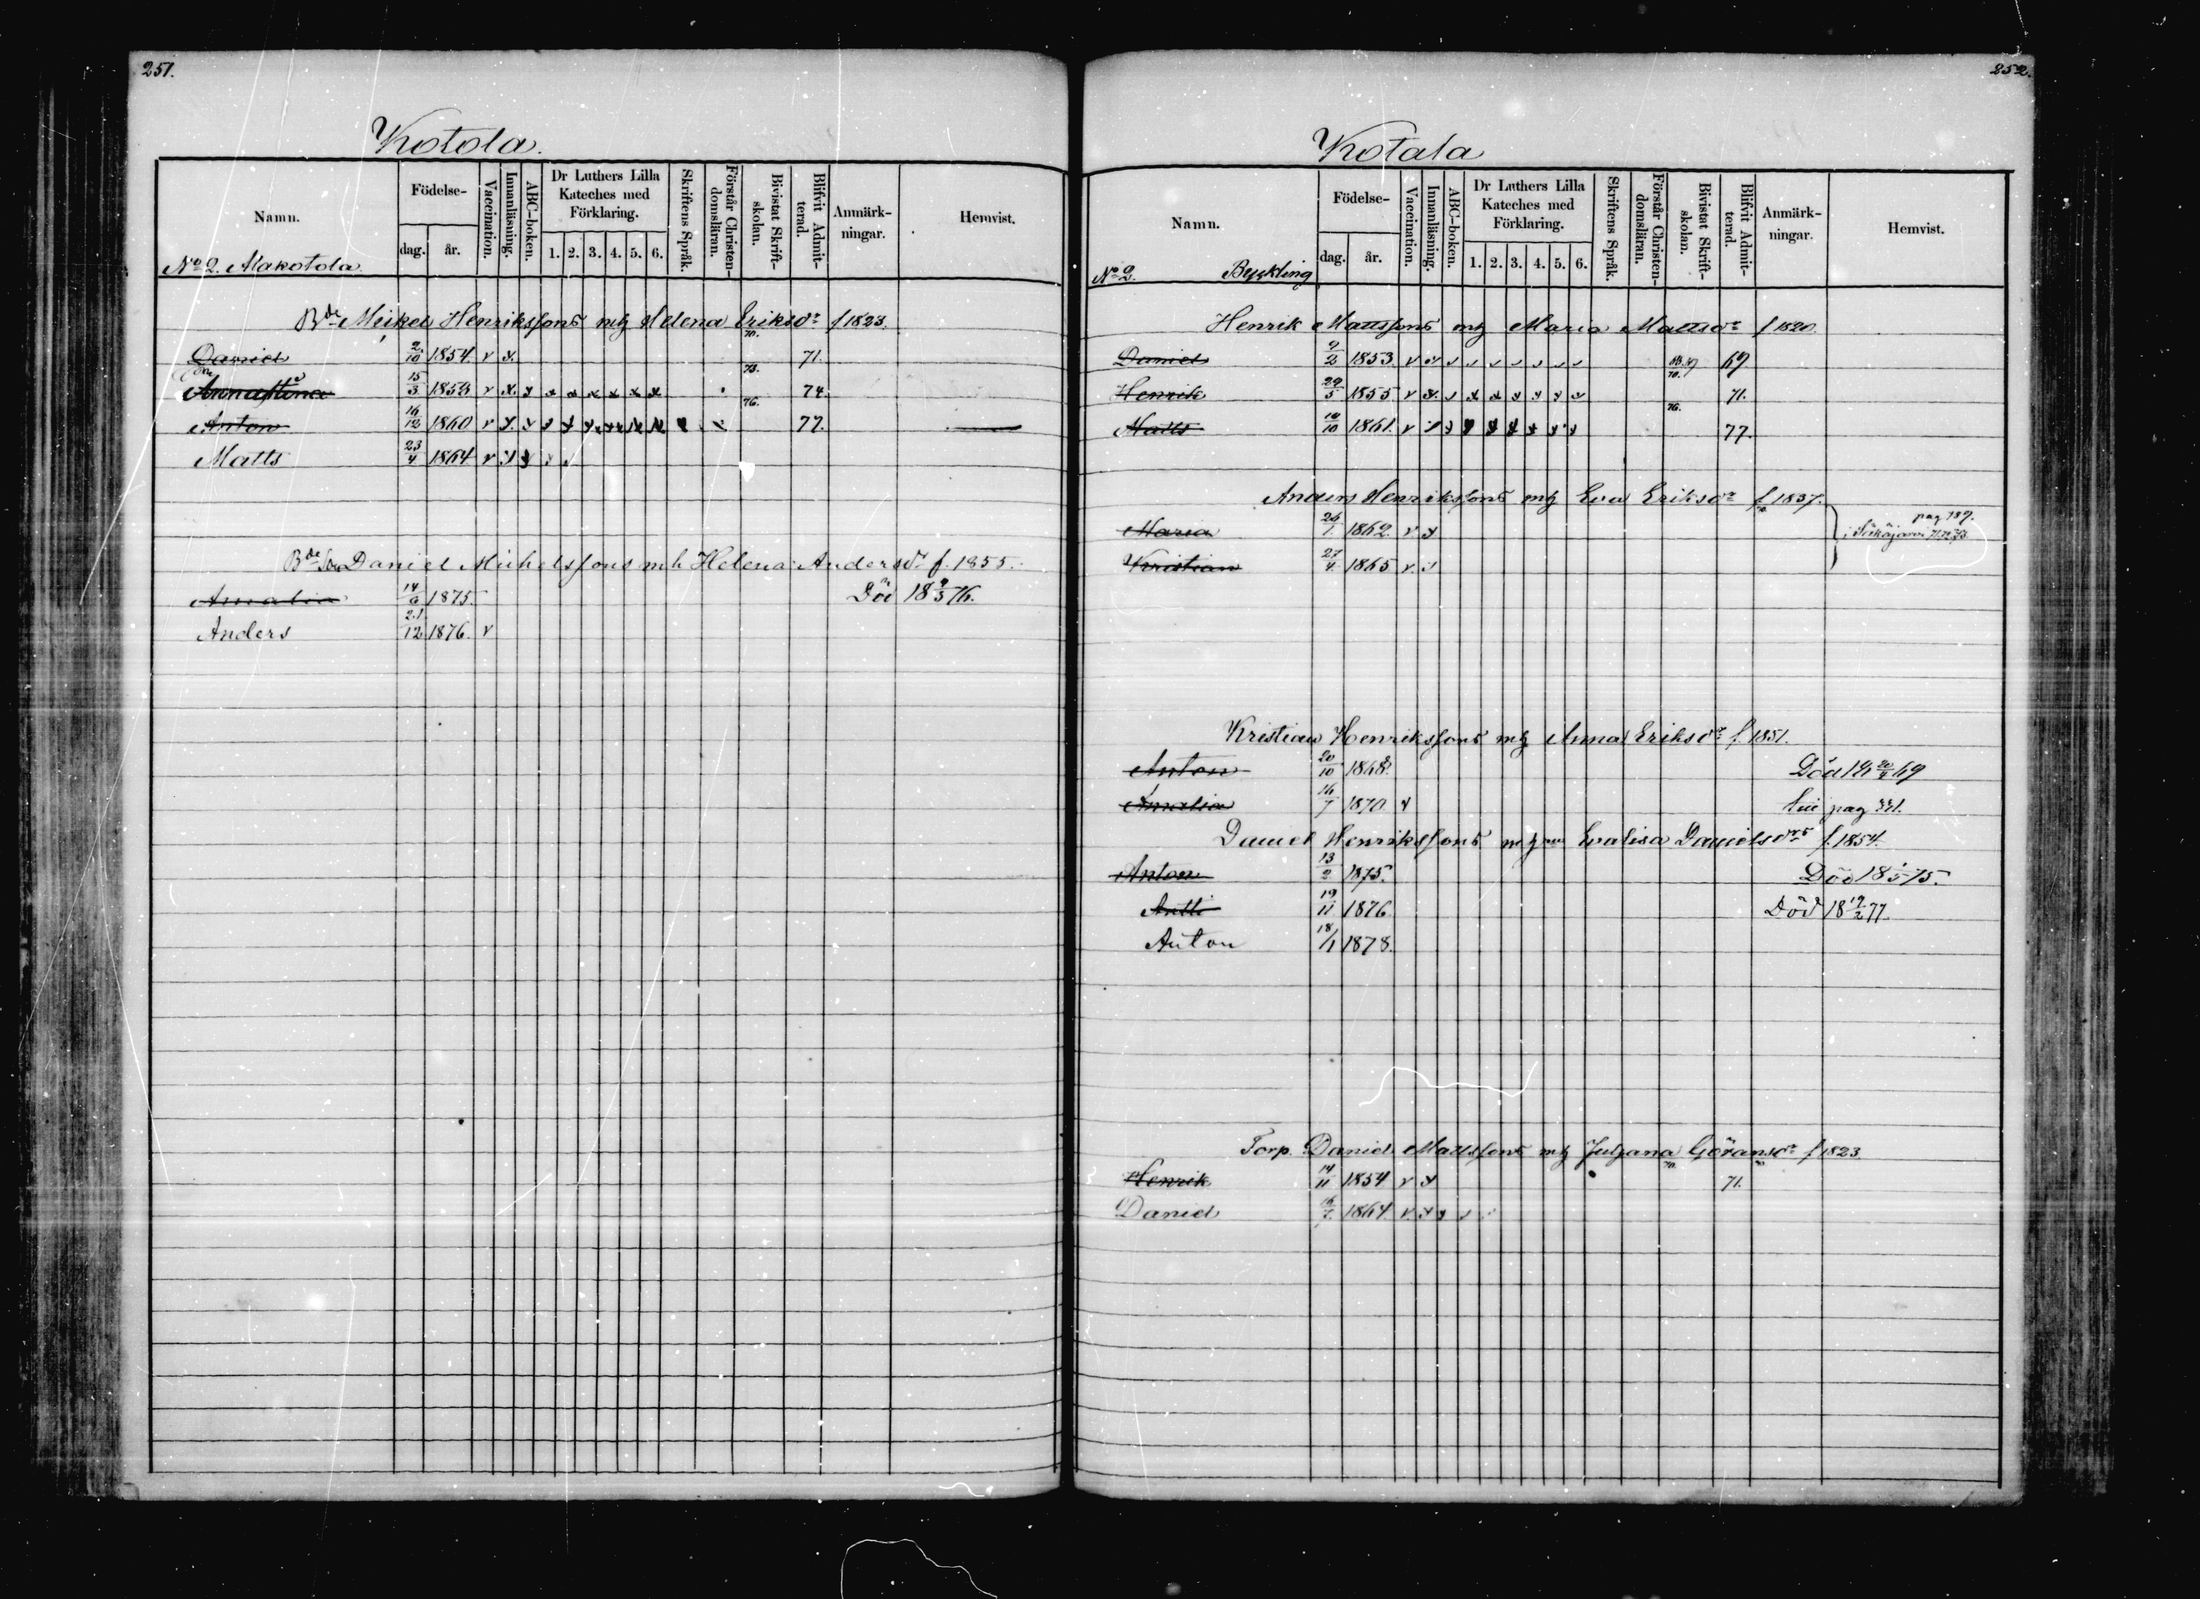 251.
Kotola.
Namn.
Födelse-
dag.
år.
Vaccination.
Innanläsning.
ABC-boken.
Dr Luthers Lilla
Kateches med
Förklaring.
1. 2. 3. 4. 5. 6.
Skriftens Språk.
Förstår Christen-
domsläran.
Bivistat Skrift-
skolan.
Blifvit Admit-
terad.
Anmärk-
ningar.
Hemvist.
No 2. Alakotola
Bde Mickel Henrikssons mh Helena Eriksdr f 1823.
Daniel 2/10 1854 v x 70. 71.
Annastina 15/3 1858 v x x x x x x x x 73. 74.
Anton 16/12 1860 v x x x x x x x x 76. 77.
Matts 23/4 1864 v x x
Bde Son Daniel Michelssons m h Helena Andersdr f. 1855.
Amalia 14/6 1875. Död 18 9/3 76.
Anders 21/12 1876. v
252.
Kotala
Namn.
Födelse-
dag.
år.
Vaccination.
Innanläsning.
ABC-boken.
Dr Luthers Lilla
Kateches med
Förklaring.
1. 2. 3. 4. 5. 6.
Skriftens Språk.
Förstår Christen-
domsläran.
Bivistat Skrift-
skolan.
Blifvit Admit-
terad.
Anmärk-
ningar.
Hemvist.
No 2. Byckling
Henrik Mattssons mh Maria Mattsdr f 1820.
Daniel 9/2 1853 v 69
Henrik 29/5 1855 v x 70. 71.
Matts 10/10 1861 v 76. 77.
Anders Henrikssons mh Eva Eriksdr f 1837.
Maria 26/1 1862 v x pag 189.
Kristian 27/4 1865 v.
Kristian Henrikssons mh Anna Eriksdr f. 1851.
Anton 20/10 1868. Död 18 20/4 69
Amalia 16/7 1870 v
Daniel Henrikssons mh Evalisa Danielsdr f. 1854.
Anton 13/2 1875. Död 18 1/5 75.
Antti 19/11 1876 Död 18 19/2 77.
Anton 18/1 1878.
Torp. Daniel Mattssons mh Juljana Göransdr f 1823
Henrik 14/11 1854 v x 71.
Daniel 16/7 1864 v. x x